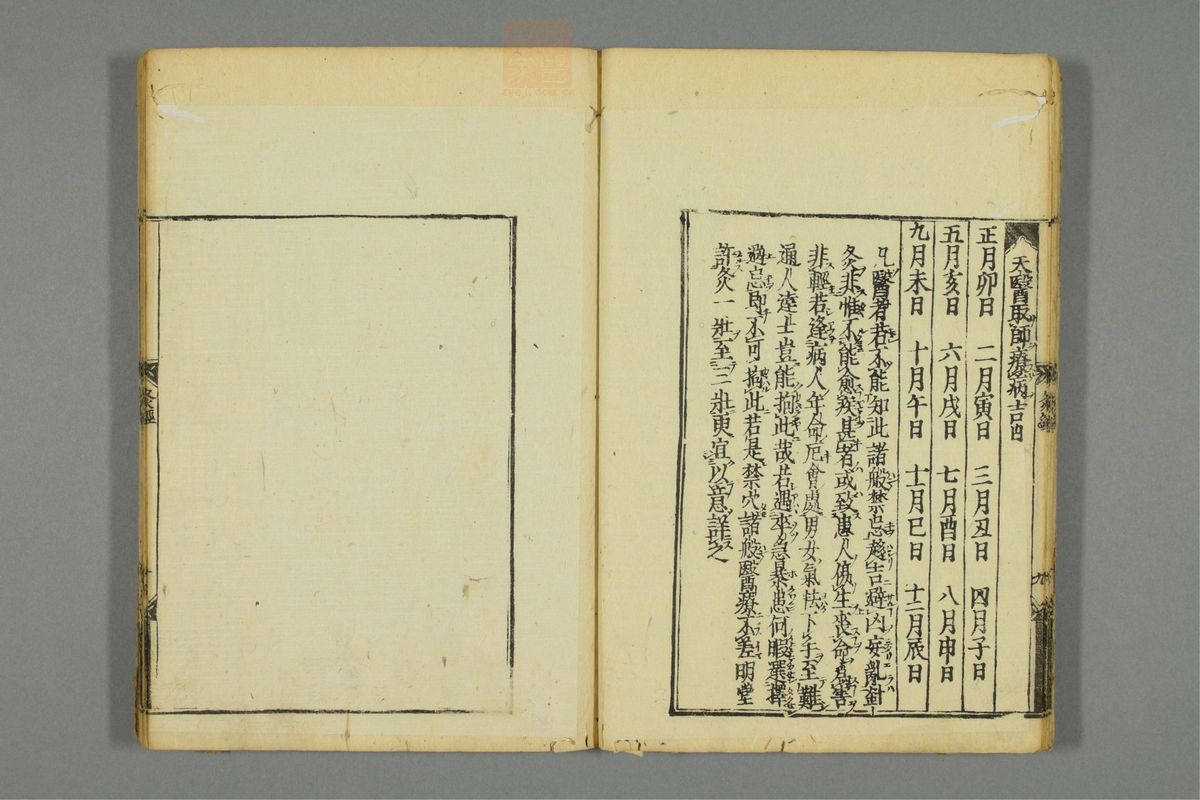 天醫取師療病吉凶
正月卯日　二月寅日　三月丑日　四月子日
五月亥日　六月戌日　七月酉日　八月申日
九月未日　十月午日　十一月巳日　十二月辰日
凡醫者若不能知此諸般禁忌趨吉避凶妄亂針
灸非惟不能愈疾甚者或致患人傷生喪命為害
非輕若逢病人年命厄會處男女氣怯下手至難
通人達士豈能拘此哉若遇卒急暴患何暇選擇
避忌即不可拘此若是禁穴諸般醫療不差明堂
許灸一壯至三壯更宜以意詳之